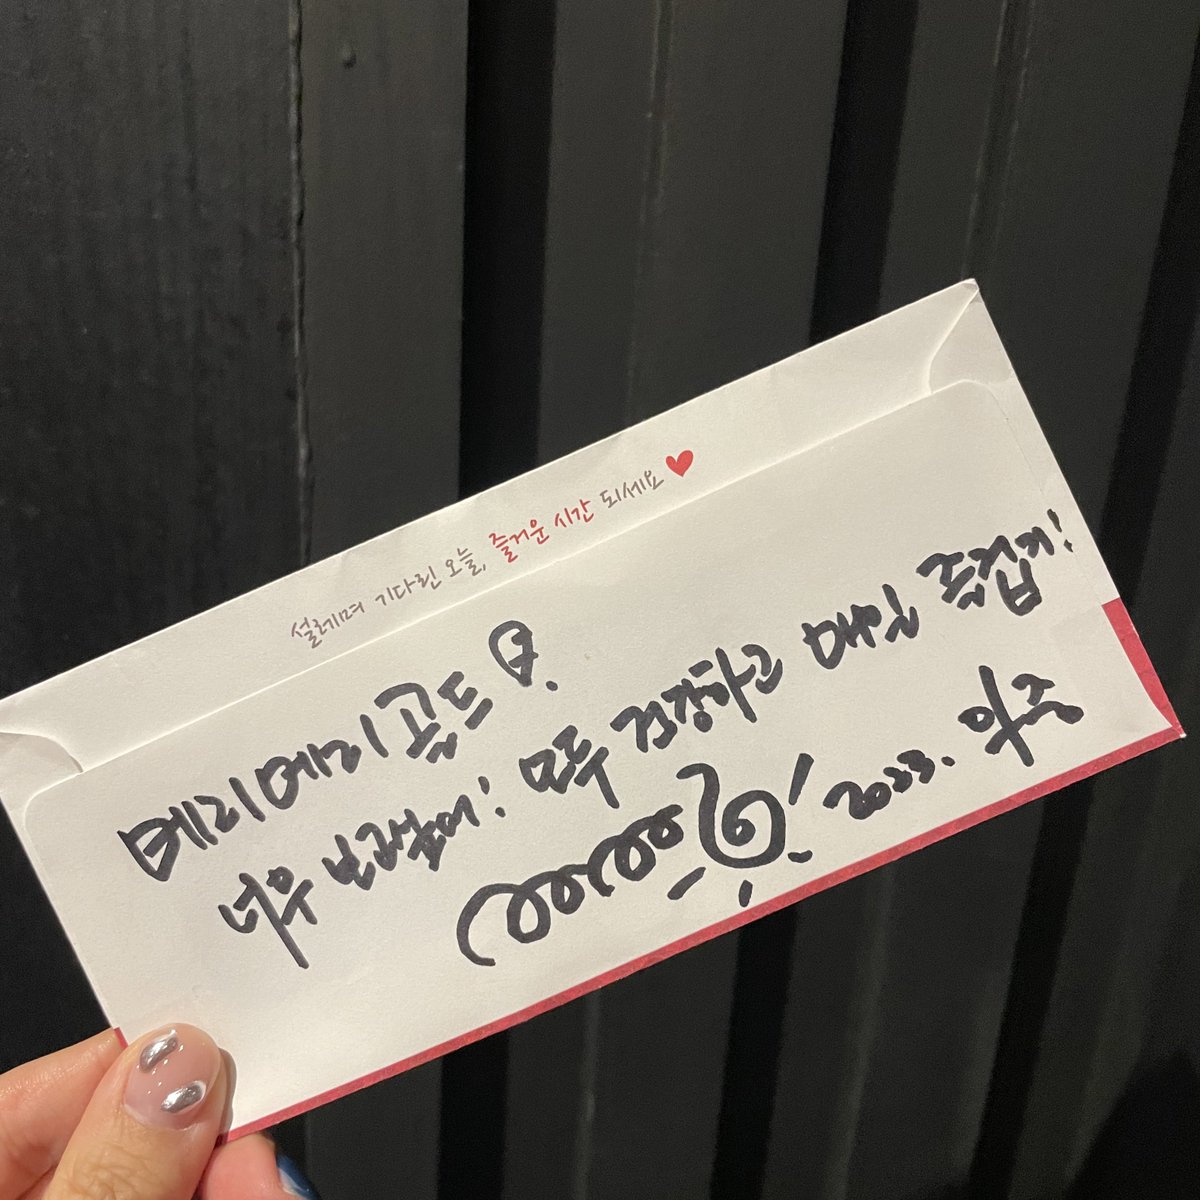 설레며 기다린 오늘, 즐거운 시간 되세요
메리메리골드
너무 보고싶어! 모두 건강하고 매우 즐겁게!
2023.